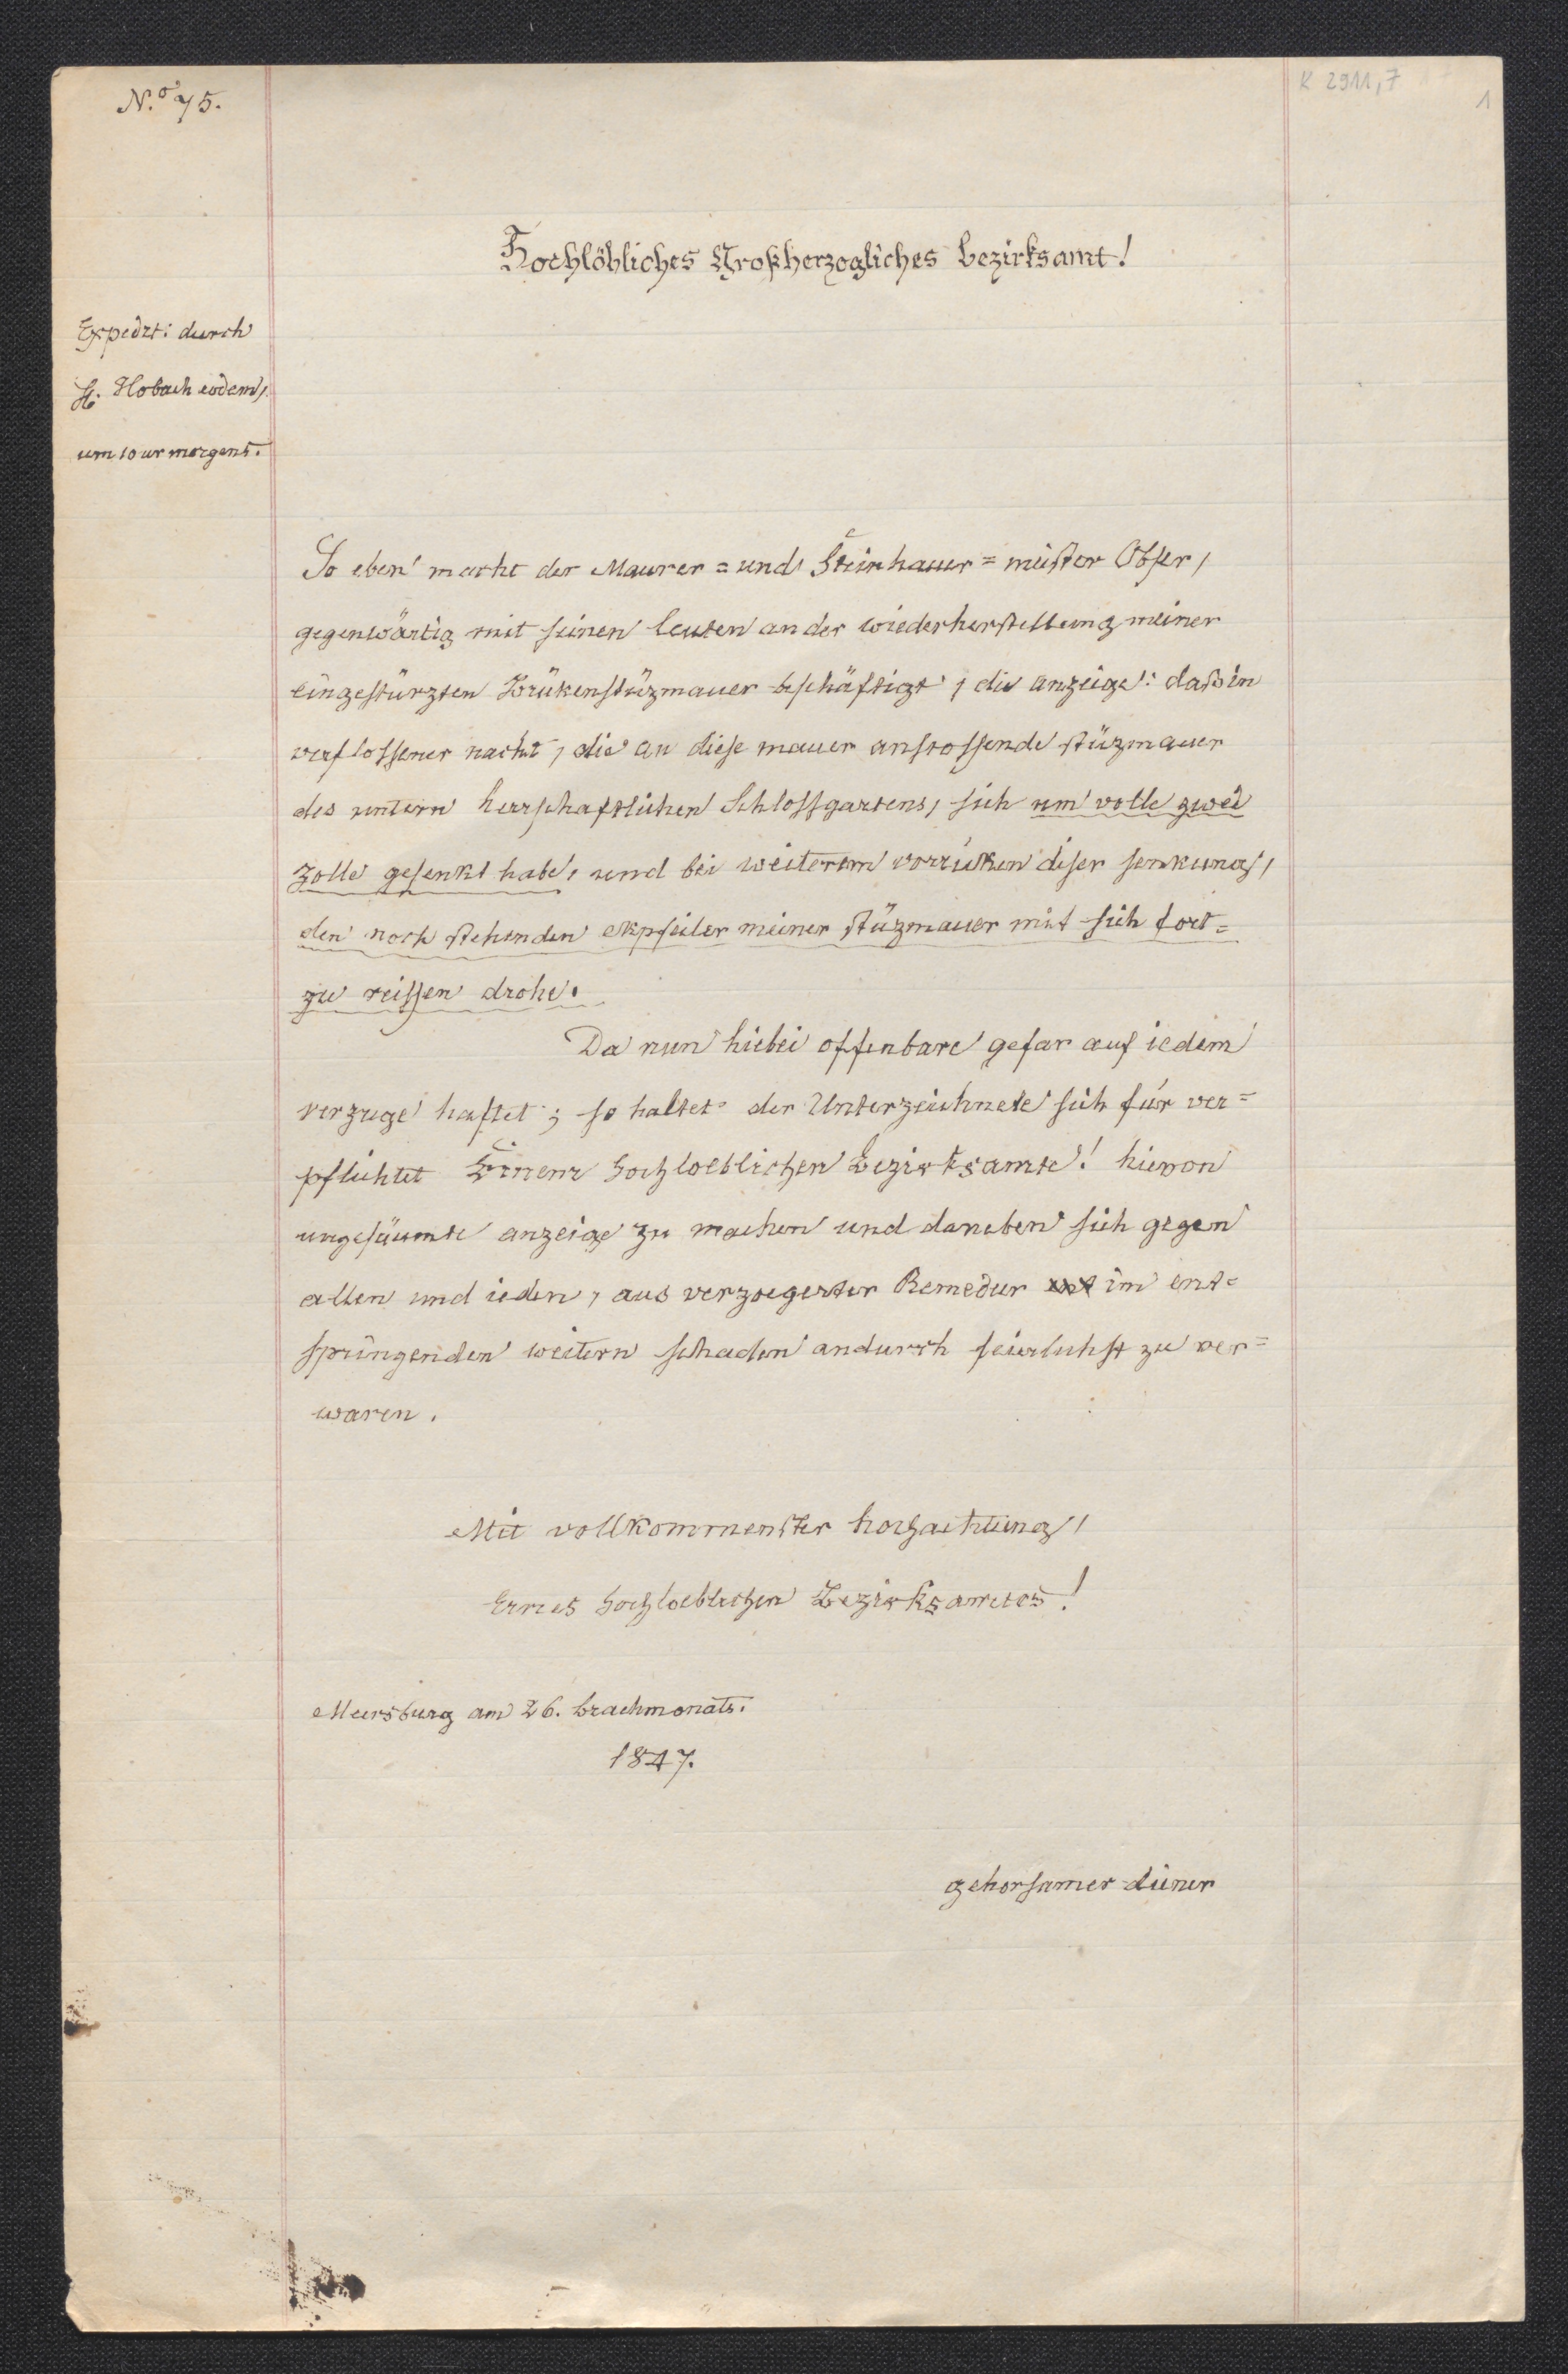 N.º 75.
K 2911,7
1
Hochlöbliches Großherzogliches bezirksamt!
Expedzt: durch
H. Hobach eodem,
um 10 ur morgens.
So eben macht der Maurer= und Steinhauer=meister Obser,
gegenwärtig mit seinen leuten an der wiederherstellung meiner
eingestürzten Brükenstüzmauer beschäftigt, die anzeige: daß in
verflossener nacht, die an diese mauer anstossende stüzmauer
des untern herrschaftlichen Schlossgartens, sich um volle zwei
zolle gesenkt habe, und bei weiterem vorrüken diser senkung,
den noch stehenden ekpfeiler meiner stüzmauer mit sich fort=
zu reissen drohe.
Da nun hiebei offenbare gefar auf iedem
verzuge haftet; so haltet der Unterzeichnete sich für ver=
pflichtet Einem hochloeblichen Bezirksamte! hievon
ungesäumte anzeige zu machen und daneben sich gegen
allen und ieden, aus verzoegerter Remedur im ent=
springenden weitern schaden andurch feierlichst zu ver=
waren.
Mit vollkommenster hochachtung,
Eines hochloeblichen Bezirksamtes!
Meersburg am 26. brachmonats.
1847.
gehorsamer diener